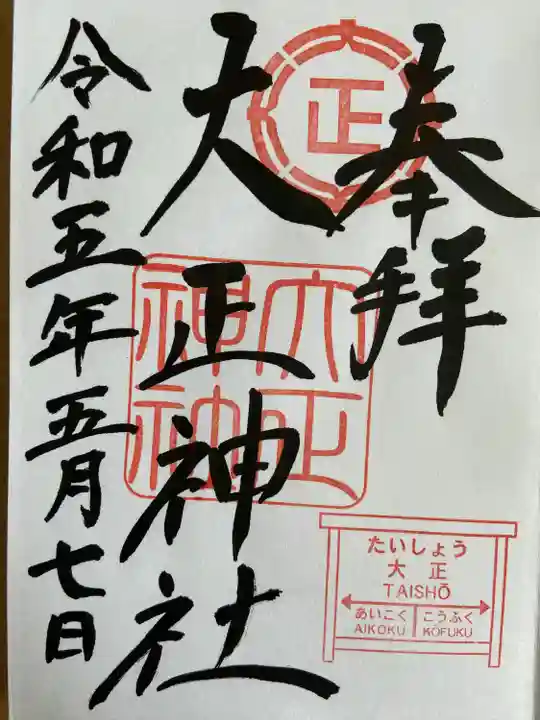 奉拝
正
大正神社
大正神社
令和五年五月七日
たいしょう
大正
TAISHŌ
あいこく こうふく
AIKOKU KŌFUKU